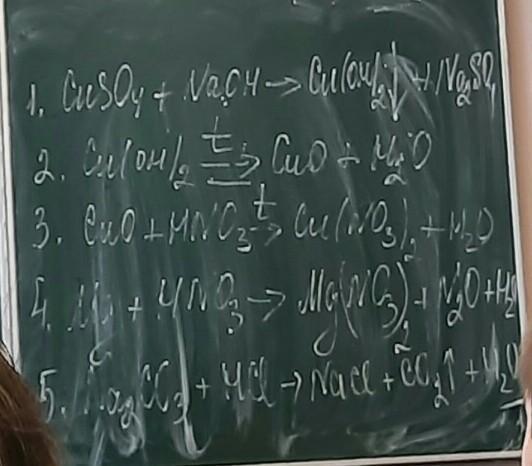 1. CuSO₄ + NaOH → Cu(OH)₂↓ + Na₂SO₄
2. Cu(OH)₂ t⇒ CuO + H₂O
3. CuO + HNO₃ t→ Cu(NO₃)₂ + H₂O
4. Mg + HNO₃ → Mg(NO₃)₂ + N₂O + H₂
5. Na₂CO₃ + HCl → NaCl + CO₂↑ + H₂O